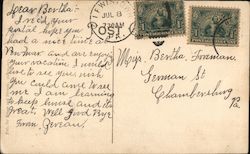 Dear Bertha:-
I rec'd your
postal hope you
had a nice time
and are enjoying
your vacation I would
like to see you wish
you could come to see
me I am learning
to keep house and
Well Good Bye
From
JUL 8
PA.
Miss Bertha Foreman.
German St
Chambersburg
Pa